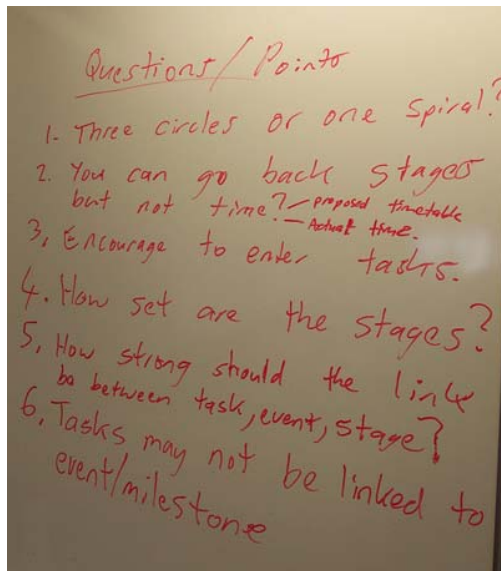 Questions/Points
1. Three circles or one spiral?
2. You can go back stages
but not time? - proposed timetable
- Actual time.
3, Encourage to enter tasks.
4. How set are the stages?
5, How strong should the link
bo between task, event, stage?
6, Tasks may not be linked to
event/milestone